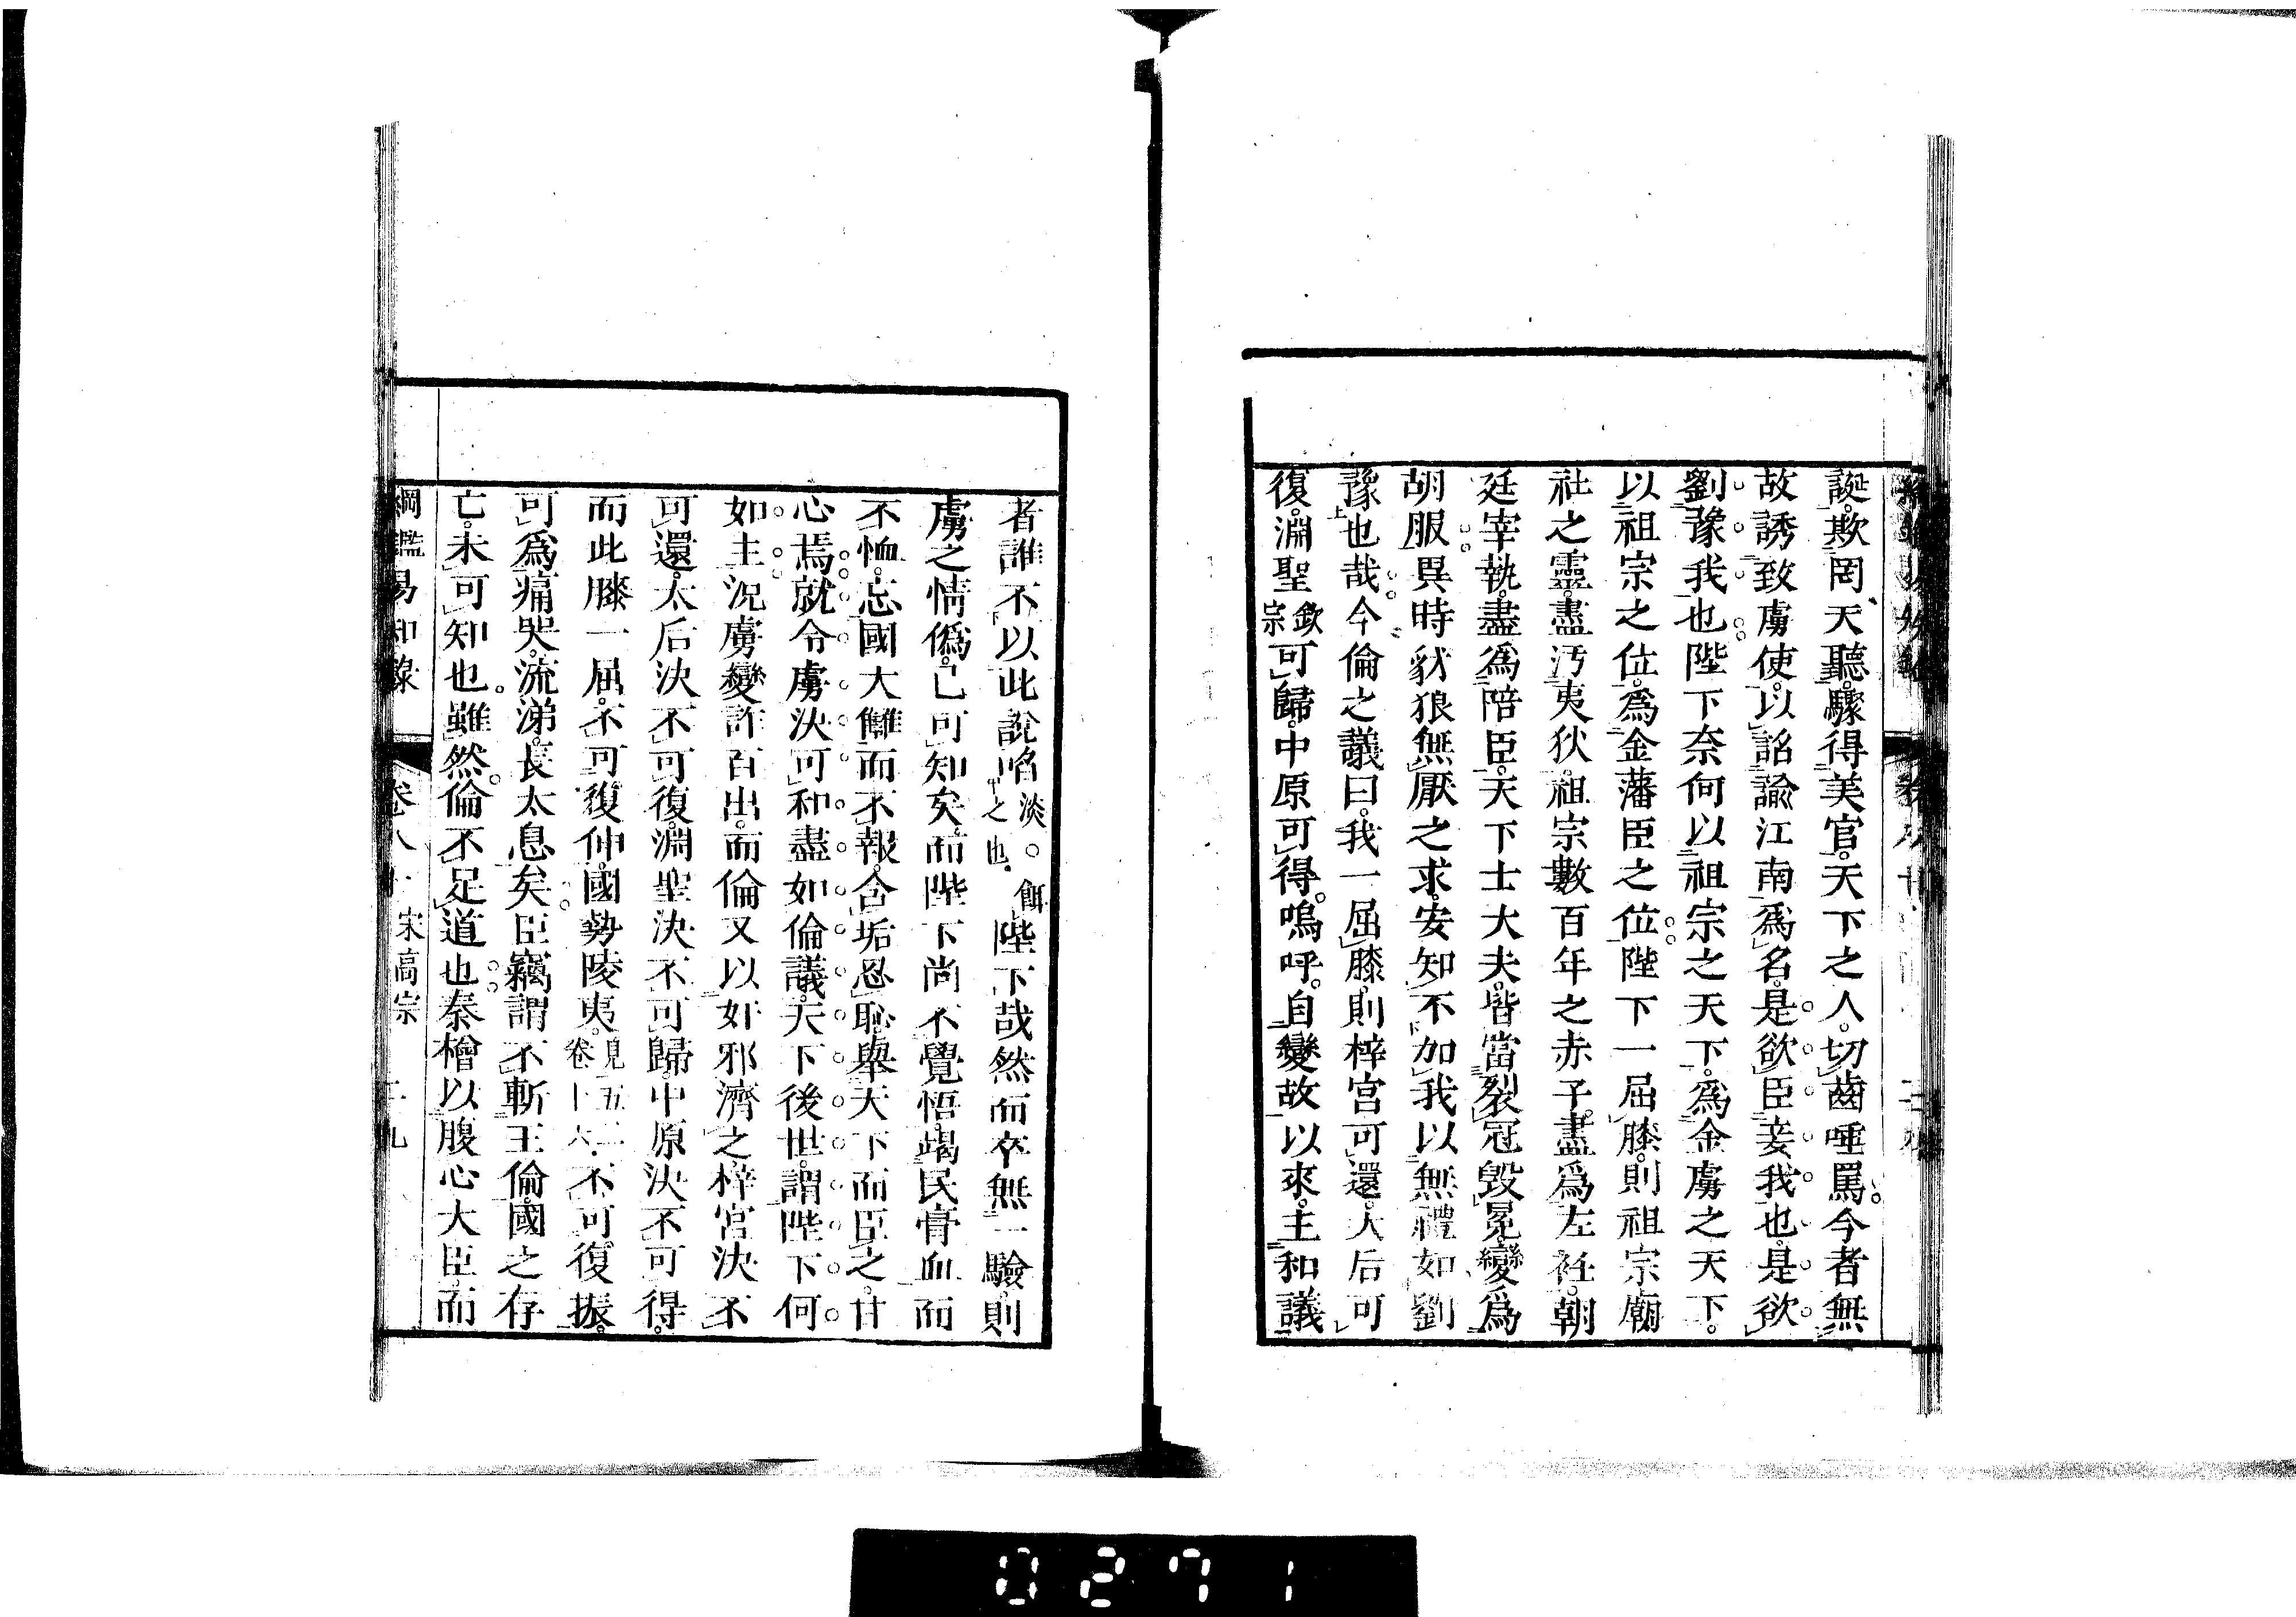 誕。欺罔天聽。驟得美官。天下之人。切齒唾罵。今者無
故誘致虜使。以詔諭江南爲名。是欲臣妾我也。是欲
劉豫我也陛下奈何以祖宗之天下。爲金虜之天下。
以祖宗之位。爲金藩臣之位陛下一屈膝。則祖宗廟
社之靈。盡汚夷狄。祖宗數百年之赤子。盡爲左衽。朝
廷宰執。盡爲陪臣。天下士大夫。皆當裂冠毀冕。變爲
胡服異時豺狼無厭之求。安知不加我以無禮如劉
豫也哉今倫之議曰。我一屈膝。則梓宮可還。太后可
復。淵聖欽宗可歸。中原可得。嗚呼。自變故以來。主和議
者誰不以此說啗淡。餌之也陛下哉然而卒無一驗。則
虜之情僞。已可知矣。而陛下尚不覺悟。竭民膏血而
不恤。忘國大讎而不報。含垢忍恥。舉天下而臣之。甘
心焉就令虜決可和盡如倫議。天下後世。謂陛下何
如主況虜變詐百出。而倫又以奸邪濟之梓宮決不
可還。太后決不可復。淵聖決不可歸。中原決不可得。
而此膝一屈。不可復伸。國勢陵夷。見五二卷十六不可復振。
可爲痛哭。流涕。長太息矣臣竊謂不斬王倫。國之存
亡。未可知也。雖然。倫不足道也秦檜以腹心大臣。而
綱鑑易知錄 卷八十 宋高宗